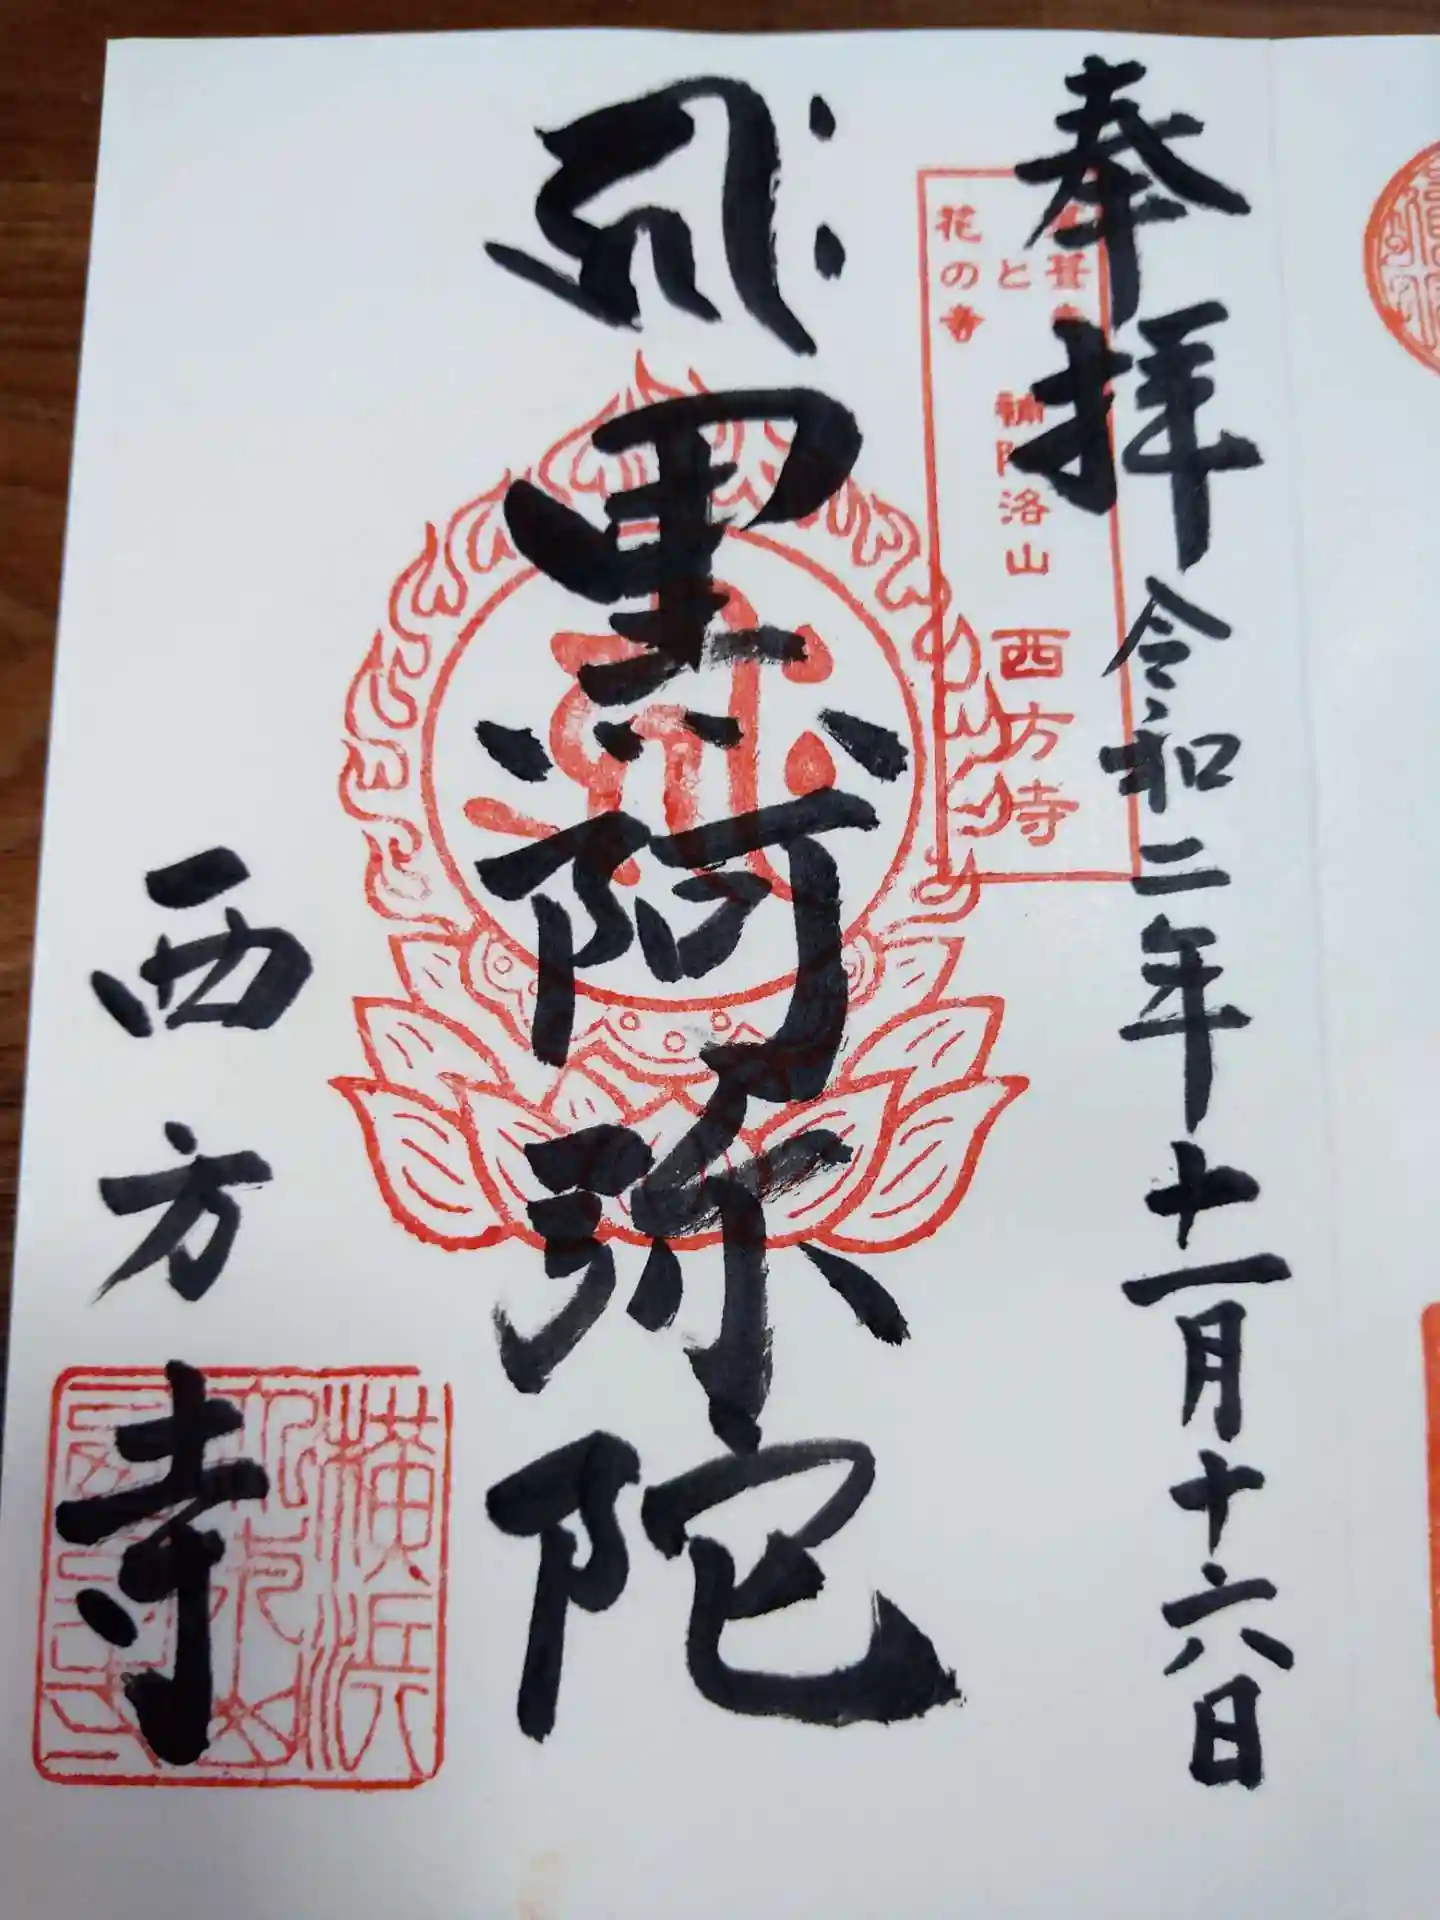 奉拝 令和二年十一月十六日
と
花の寺
補陀洛山 西方寺
𑖮𑖿𑖨𑖱𑖾
黒阿弥陀
西方寺
横浜